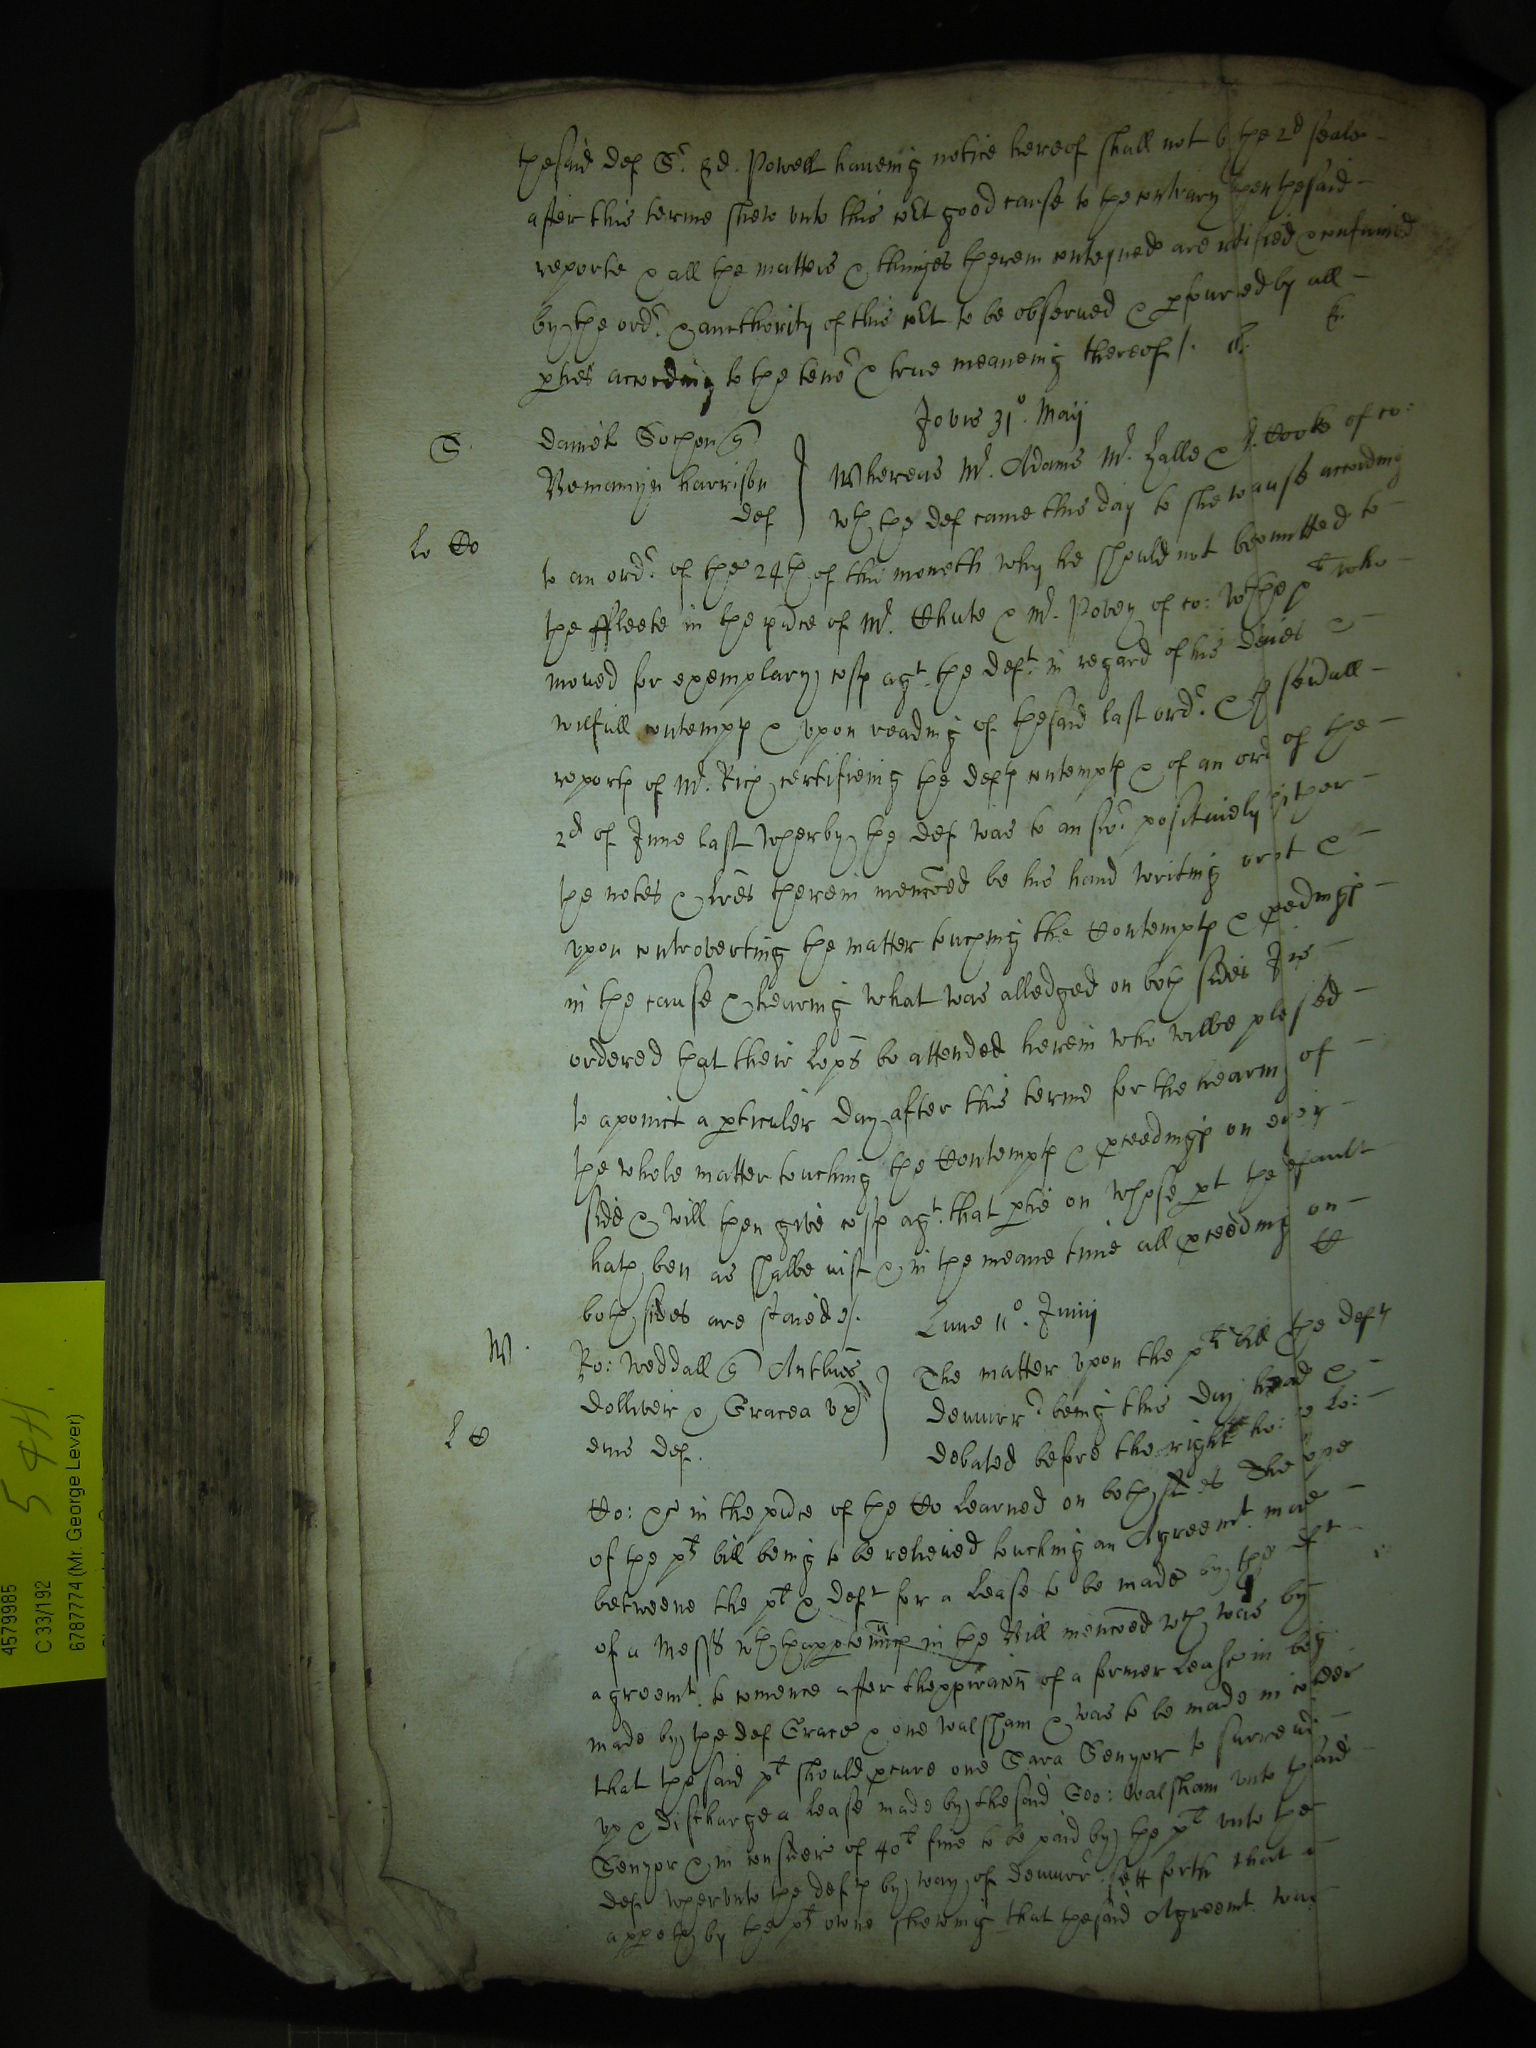 the said def Sr. Ed. Powell haueing notice hereof shall not by the 2d seale
after this terme shew vnto this cort good cause to the contrary then the said
reporte & all the matters & thinges therein conteyned are ratified & confirmed
by the ordr. & aucthority of this cort to be obserued & pformed by all
pties according to the tenor & true meaneing thereof /.
Jovis 31o. Maij
S.
Daniell
Beniamyn Harrison
def
Whereas Mr. Adams Mr. Halle & Mr. Cooke of co:
wth the def came this day to shew cause according
to an ordr. of the 24th of this moneth why he should not be comitted to
the ffleete in the pnce of Mr. Chute & Mr. Povey of co: wth the pt who
moued for exemplary costs agt. the deft. in regard of his &
wilfull contempts & vpon reading of the said last ordr. & of seuall
reports of Mr. Rich certifieing the defts contempts & of an ordr of the
2d of June last wherby the def was to answr. positiuely hither
the notes & lres therein menc̄oed be his hand writing or not &
vpon controverting the matter touching the Contempts & pcedings
in the cause & hearing what was alledged on both sides It is
ordered that their Lops be attended herein who wilbe plesed
to apoinct a pticuler day after this terme for the hearing of
the whole matter touching the Contempts & pceedings on every
side & will then give costs agt. that ptie on whose pt the default
hath ben as shalbe iust & in the meane time all pceeding on
both sides are staied /.
Lune 11o. Junij
W.
Ro: Weddall
Dolliver & Gracea vx
eius def.
The matter vpon the pts bill the defts
demurrr. being this day heard &
debated before the right ho: Lo:
Co: in the pnce of the Co learned on both sides The
of the pts bill being to be relieued touching an Agreemt. made
betweene the pt & deft for a Lease to be made by the deft
of a Mess wth in the Bill menc̄oed wch was by
agreemt. to comence after thexpirac̄on of a former Lease in being
made by the def Grace & one Walsham & was to be made in
that the said pt should pcure one Sara Senyor to surrendr
vp & discharge a lease made by the said Geo: Walsham vnto the said
Senyor & in of 40l fine to be paid by the pt vnto the
def wherunto the defts by way of demurrr. sett forth that it
appeth by the pts owne shewing that the said Agreemt. was
4579985
C 33/192
6787774 (Mr. George Lever)